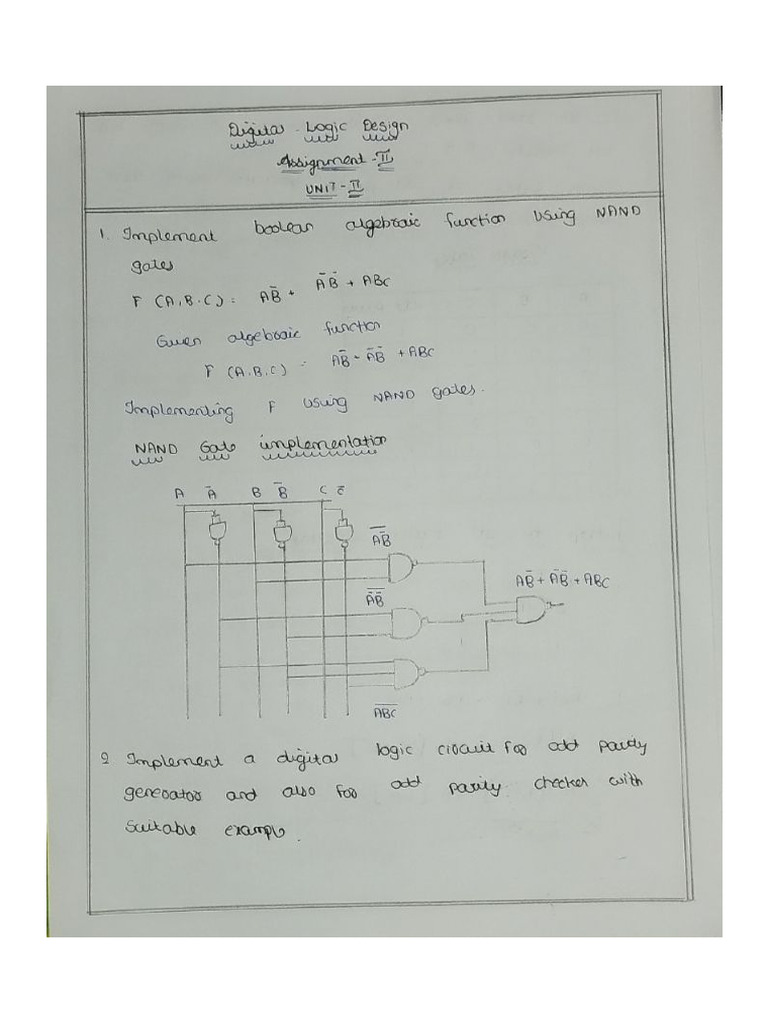 Digital Logic Design
Assignment - II
UNIT - II
1. Implement boolean algebraic function using NAND
gates
F (A,B,C) = AB̅ + A̅B̅ + ABC
Given algebraic function
F (A,B,C) = AB̅ - A̅B̅ + ABC
Implementing F using NAND gates.
NAND Gate implementation
A A̅ B B̅ C C̅
A̅B̅̅
A̅B̅
AB̅ + A̅B̅ + ABC
A̅B̅C̅
2 Implement a digital logic circuit for odd parity
generator and also for odd parity checker with
suitable example.